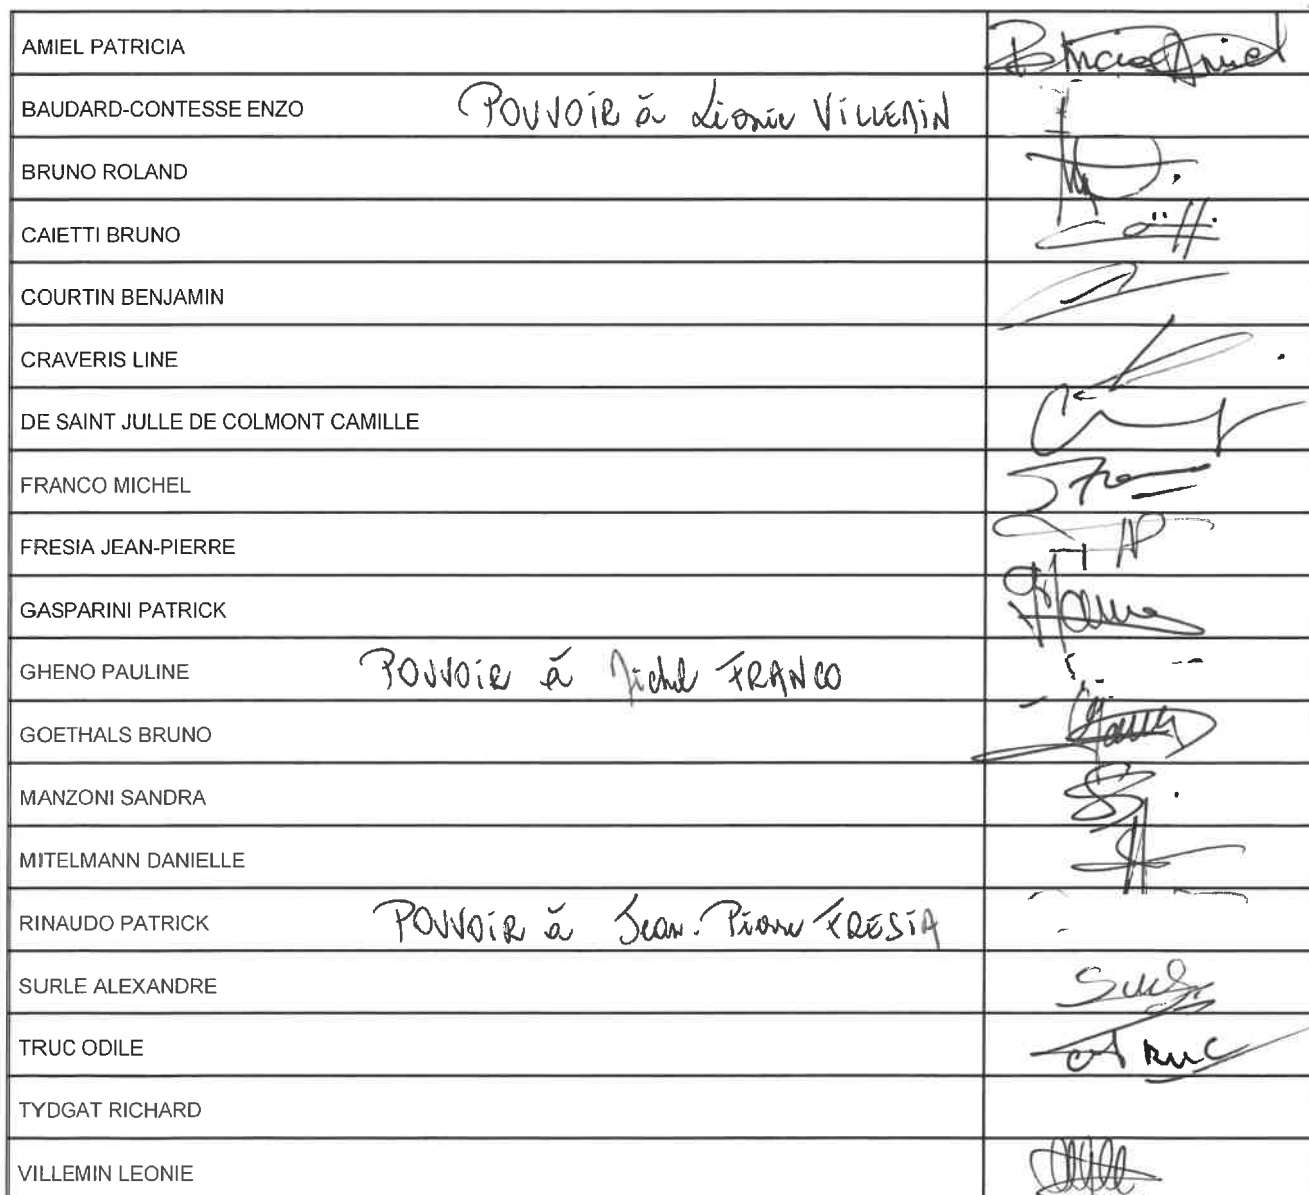 AMIEL PATRICIA Patricia Amiel
BAUDARD-CONTESSE ENZO POUVOIR à Léonie VILLEMIN
BRUNO ROLAND
CAIETTI BRUNO
COURTIN BENJAMIN
CRAVERIS LINE
DE SAINT JULLE DE COLMONT CAMILLE
FRANCO MICHEL
FRESIA JEAN-PIERRE
GASPARINI PATRICK
GHENO PAULINE POUVOIR à Michel FRANCO
GOETHALS BRUNO
MANZONI SANDRA
MITELMANN DANIELLE
RINAUDO PATRICK POUVOIR à Jean-Pierre FRESIA
SURLE ALEXANDRE
TRUC ODILE O Truc
TYDGAT RICHARD
VILLEMIN LEONIE